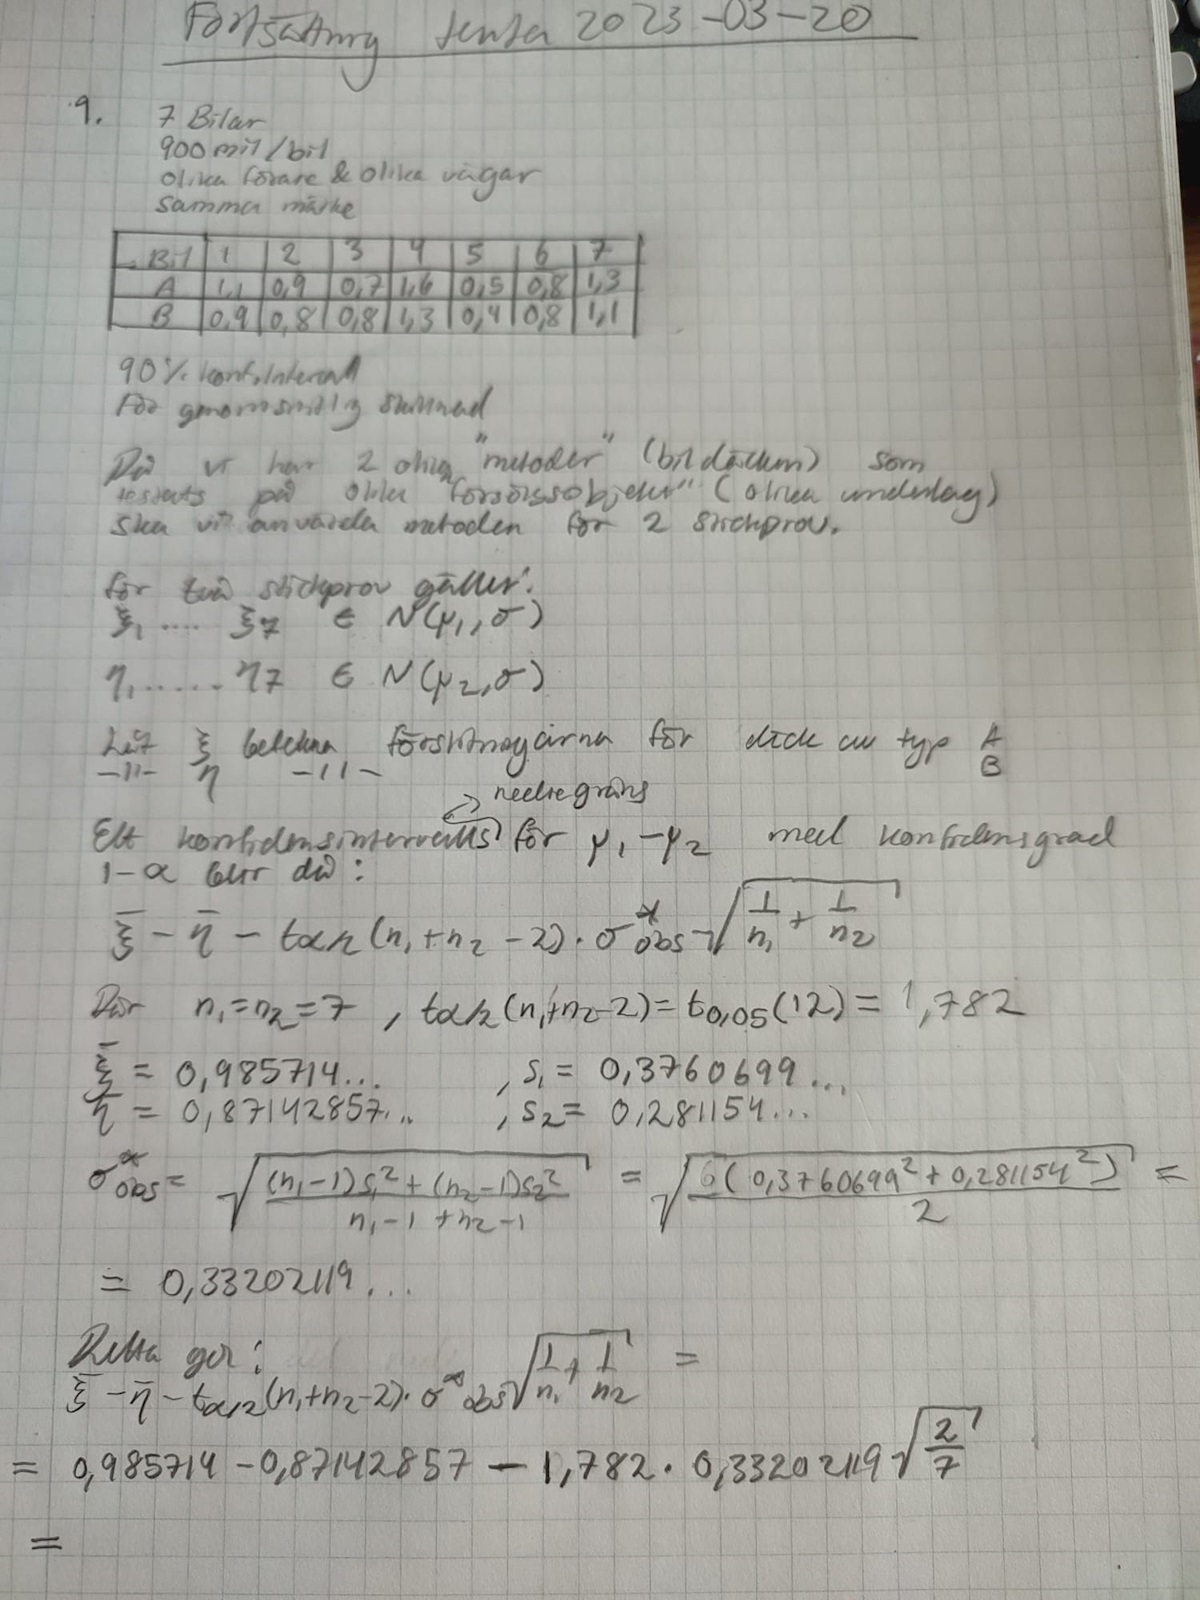 Fortsättning tenta 2023-03-20
9. 7 Bilar
900 mil/bil
olika förare & olika vägar
samma märke
Bil 1 2 3 4 5 6 7
A 1,1 0,9 0,7 1,6 0,5 0,8 1,3
B 0,9 0,8 0,8 1,3 0,4 0,8 1,1
90% konf.interval
För genomsnittlig skillnad
Då vi har 2 olika "metoder" (bildäcken) som
testats på olika försöksobjekt" (olika underlag)
ska vi använda metoden för 2 stickprov.
för två stickprov gäller:
ξ₁ .... ξ₇ ∈ N(μ₁, σ)
η₁ ...... η₇ ∈ N(μ₂, σ)
Låt ξ beteckna förslitningarna för däck av typ A
-11- η -11- B
nedre gräns
Ett konfidensintervalls för μ₁-μ₂ med konfidensgrad
1-α blir då:
ξ̄ - η̄ - tα/2(n₁+n₂-2)·σ*obs √(1/n₁ + 1/n₂)
Där n₁=n₂=7, tα/2(n₁+n₂-2)=t0,05(12)=1,782
ξ̄ = 0,985714... , s₁= 0,3760699...
η̄ = 0,87142857... , s₂= 0,281154...
σ*obs = √((n₁-1)s₁²+(n₂-1)s₂² / n₁-1+n₂-1) = √(6(0,3760699²+0,281154²) / 2) =
= 0,33202119...
Detta ger:
ξ̄ - η̄ - tα/2(n₁+n₂-2)·σ*obs √(1/n₁ + 1/n₂) =
= 0,985714 - 0,87142857 - 1,782·0,33202119 √(2/7)
=